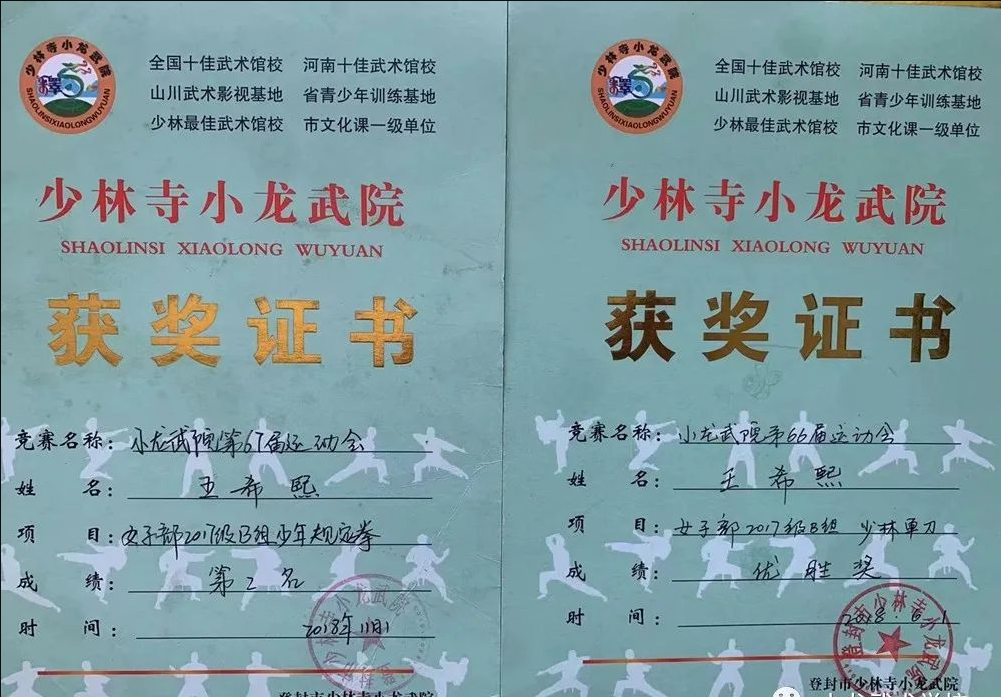 少林寺小龙武院
SHAOLINSIXIAOLONGWUYUAN
全国十佳武术馆校 河南十佳武术馆校
山川武术影视基地 省青少年训练基地
少林最佳武术馆校 市文化课一级单位
少林寺小龙武院
SHAOLINSI XIAOLONG WUYUAN
获奖证书
竞赛名称：小龙武院第67届运动会
姓名：王希熙
项目：女子部2017级B组少年规定拳
成绩：第2名
时间：2018年11月1
登封市少林寺小龙武院
少林寺小龙武院
SHAOLINSIXIAOLONGWUYUAN
全国十佳武术馆校 河南十佳武术馆校
山川武术影视基地 省青少年训练基地
少林最佳武术馆校 市文化课一级单位
少林寺小龙武院
SHAOLINSI XIAOLONG WUYUAN
获奖证书
竞赛名称：小龙武院第66届运动会
姓名：王希熙
项目：女子部2017级B组 少林单刀
成绩：优胜奖
时间：2018.6.1
登封市少林寺小龙武院